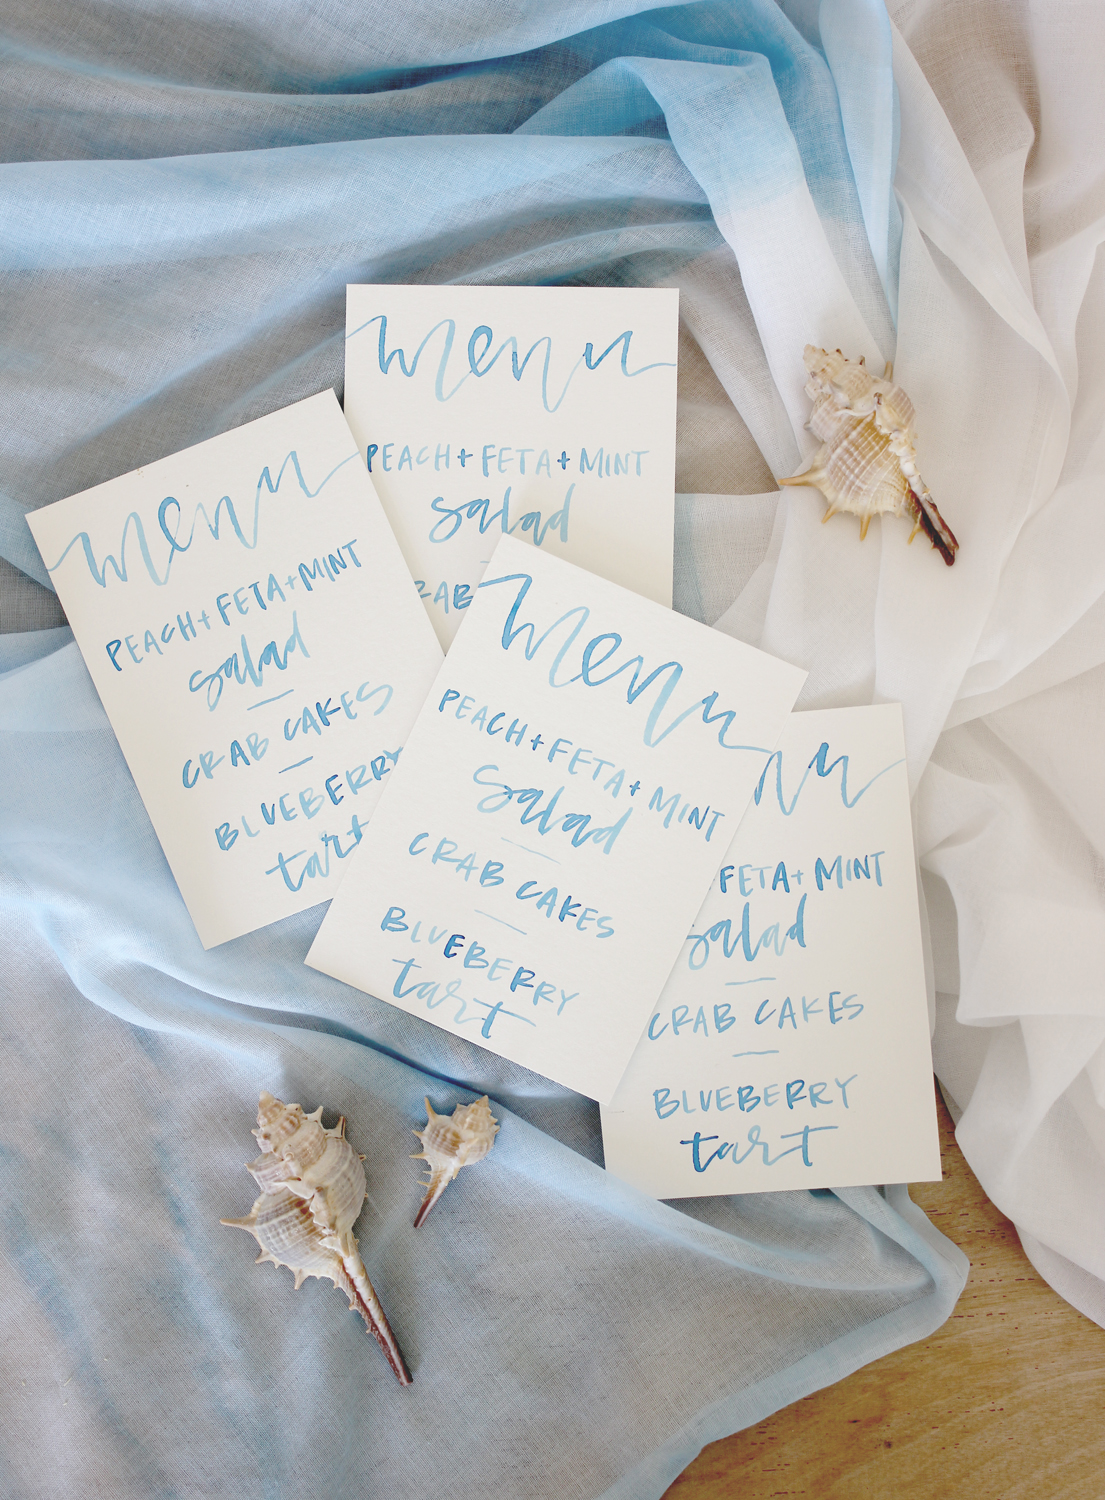 menu
PEACH + FETA + MINT
salad
CRAB
menu
PEACH + FETA + MINT
salad
CRAB CAKES
BLUEBERRY
tart
menu
PEACH + FETA + MINT
salad
CRAB CAKES
BLUEBERRY
tart
nu
FETA + MINT
salad
CRAB CAKES
BLUEBERRY
tart